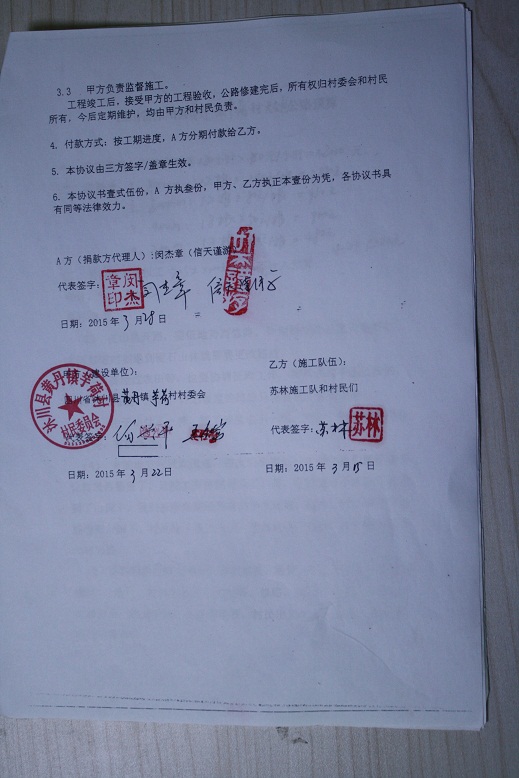 3.3 甲方负责监督施工。
工程竣工后，接受甲方的工程验收，公路修建完后，所有权归村委会和村民
所有，今后定期维护，均由甲方和村民负责。
4. 付款方式：按工期进度，A 方分期付款给乙方。
5. 本协议由三方签字/盖章生效。
6. 本协议书壹式伍份，A 方执叁份，甲方、乙方执正本壹份为凭，各协议书具
有同等法律效力。
A 方（捐款方代理人）:闵杰章（信天谨游
代表签字：
闵杰章印
日期：2015 年 3 月 28 日
甲方（建设单位）：
黄丹镇 村村委会
沐川县黄丹镇 村民委员会
代表签字：
日期：2015 年 3 月 22 日
乙方（施工队伍）：
苏林施工队和村民们
代表签字：苏林
苏林
日期：2015 年 3 月 15 日